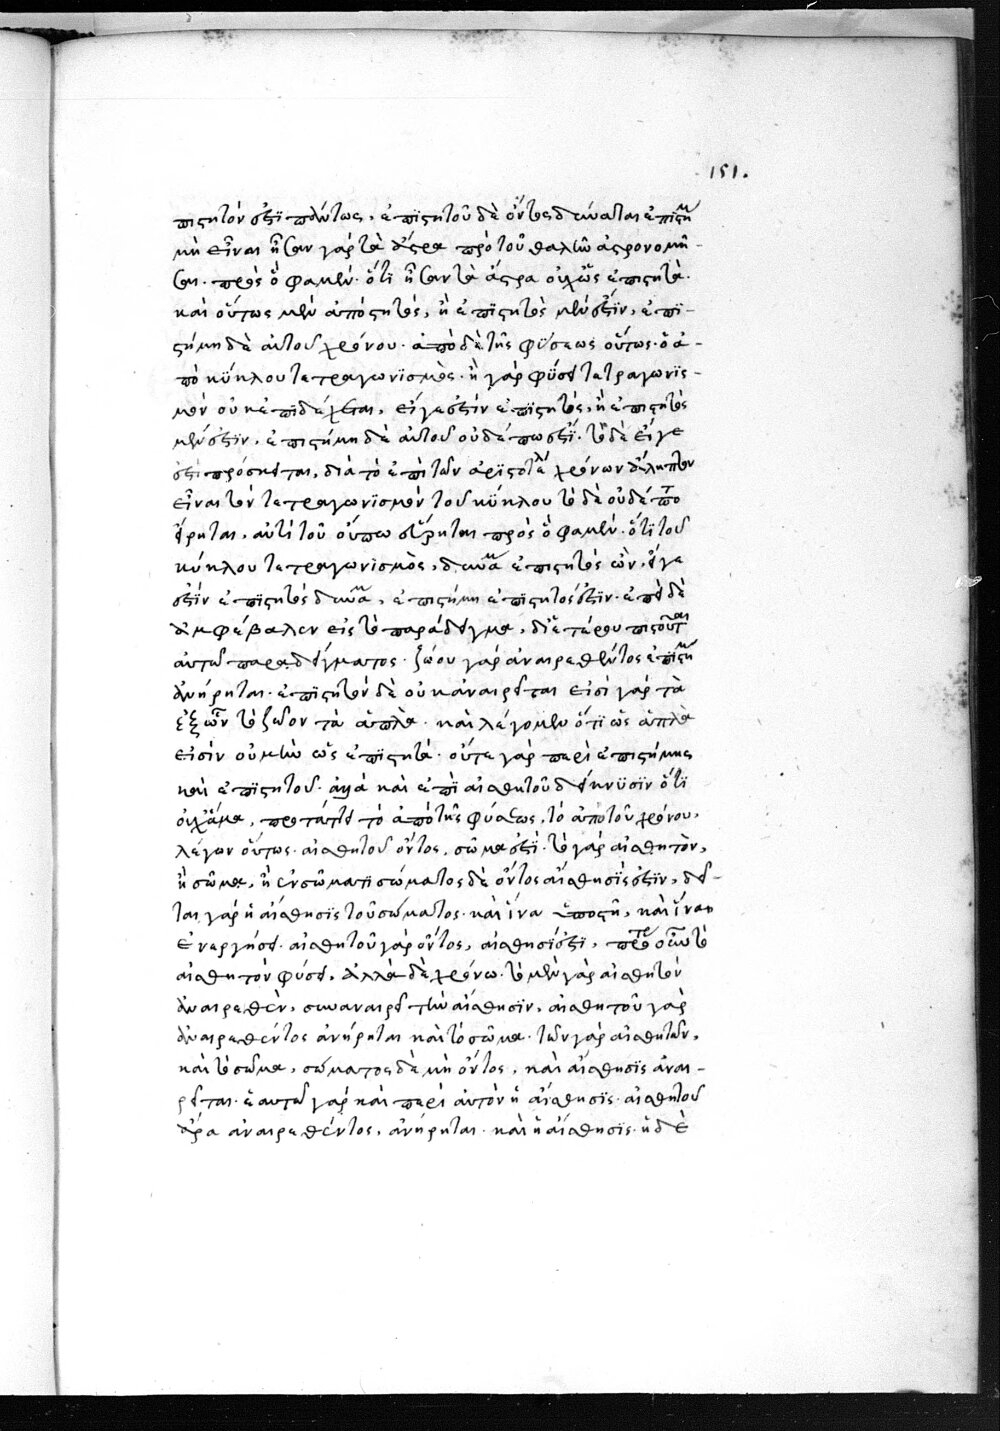 151.
πιστητόν ἐστι πάντως. ἐπιστητοῦ δὲ ὄντος δύναται ἐπιστή
μη εἶναι ἦσαν γὰρ τὰ ἄστρα πρὸ τοῦ θαλῶ ἀστρονομῆ-
σαι. πρὸς ὅ φαμέν. ὅτι ἦσαν τὰ ἄστρα οὐχ ὡς ἐπιστητά.
καὶ οὕτως μὲν ἀπὸ
στήμη δὲ αὐτοῦ χρόνου. ἀπὸ δὲ τῆς φύσεως οὕτως. ὁ ἀ-
πὸ κύκλου τετραγωνισμὸς. ἡ γὰρ φύσει τετραγωνισ-
μὸν οὐκ ἐπιδέχεται, εἴγε ἐστὶν ἐπιστητὸς, ἢ ἐπιστητὸς
μέν ἐστιν, ἐπιστήμη δὲ αὐτοῦ οὐδέπω ἐστί. τὸ δὲ εἴγε
ἐστὶ πρόσκειται, διὰ τὸ ἐπὶ τῶν ἀριστοτέλους χρόνων ἄληπτον
εἶναι τὸν τετραγωνισμόν τοῦ κύκλου τὸ δὲ οὐδέπο
εἴρηται, ἀντὶ τοῦ οὔπω εὕρηται πρὸς ὅ φαμέν. ὅτι τοῦ
κύκλου τετραγωνισμὸς, δυνάμει ἐπιστητὸς ὢν, εἴγε
ἐστὶν ἐπιστητὸς δυνάμει, ἐπιστήμη ἐπιστητός ἐστιν. ἐπεὶ δὲ
ἀμφέβαλεν εἰς τὸ παράδειγμα, δι' ἑτέρου πιστοῦται
αὐτῶ παραδείγματος. ζώου γὰρ ἀναιρεθέντος ἐπιστήμη
ἀνήρηται. ἐπιστητὸν δὲ οὐκ ἀναιρεῖται εἰσὶ γὰρ τὰ
ἐξ ὧν τὸ ζῶον τὰ ἁπλᾶ. καὶ λέγομεν ὅτι ὡς ἁπλᾶ
εἰσὶν οὐ μὴν ὡς ἐπιστητά. οὔτε γὰρ περὶ ἐπιστήμης
καὶ ἐπιστητοῦ. ἀλλὰ καὶ ἐπὶ αἰσθητοῦ δείκνυσιν ὅτι
οὐχ ἅμα, προτάττει τὸ ἀπὸ τῆς φύσεως, τὸ ἀπὸ τοῦ χρόνου,
λέγων οὕτως. αἰσθητοῦ ὄντος, σῶμα ἐστί. τὸ γὰρ αἰσθητὸν,
ἢ σῶμα, ἢ ἐν σώματι σώματος δὲ ὄντος αἴσθησίς ἐστιν, δεῖ-
ται γὰρ ἡ αἴσθησις τοῦ σώματος. καὶ ἵνα ὑποστῆ, καὶ ἵνα
ἐνεργήσει. αἰσθητοῦ γὰρ ὄντος, αἴσθησίς ἐστι, πρότερον οὖν τὸ
αἰσθητὸν φύσει, ἀλλὰ δὲ χρόνω. τὸ μὲν γὰρ αἰσθητὸν
ἀναιρεθὲν, συναναιρεῖ τὴν αἴσθησιν, αἰσθητοῦ γὰρ
ἀναιρεθέντος ἀνήρηται καὶ τὸ σῶμα. τῶν γὰρ αἰσθητῶν,
καὶ τὸ σῶμα, σώματος δὲ μὴ ὄντος, καὶ αἴσθησις ἀναι-
ρεῖται. ἐαυτῶ γὰρ καὶ περὶ αὐτὸν ἡ αἴσθησις. αἰσθητοῦ
ἄρα ἀναιρεθέντος, ἀνήρηται. καὶ ἡ αἴσθησις. ἡ δὲ